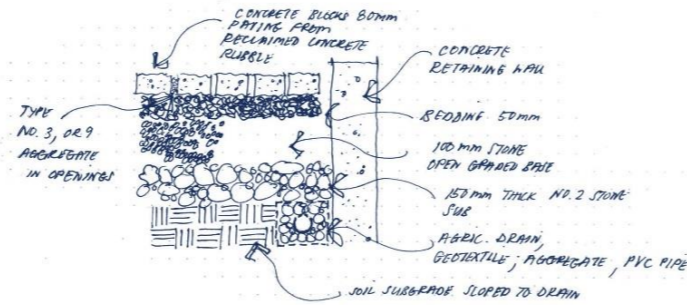 CONCRETE BLOCKS 80MM
PAVING FROM
RECLAIMED CONCRETE
RUBBLE
CONCRETE
RETAINING WALL
TYPE
NO. 3, OR 9
AGGREGATE
IN OPENINGS
BEDDING 50mm
100mm STONE
OPEN GRADED BASE
150mm THICK NO. 2 STONE
SUB
AGRIC. DRAIN,
GEOTEXTILE, AGGREGATE, PVC PIPE
SOIL SUBGRADE SLOPED TO DRAIN